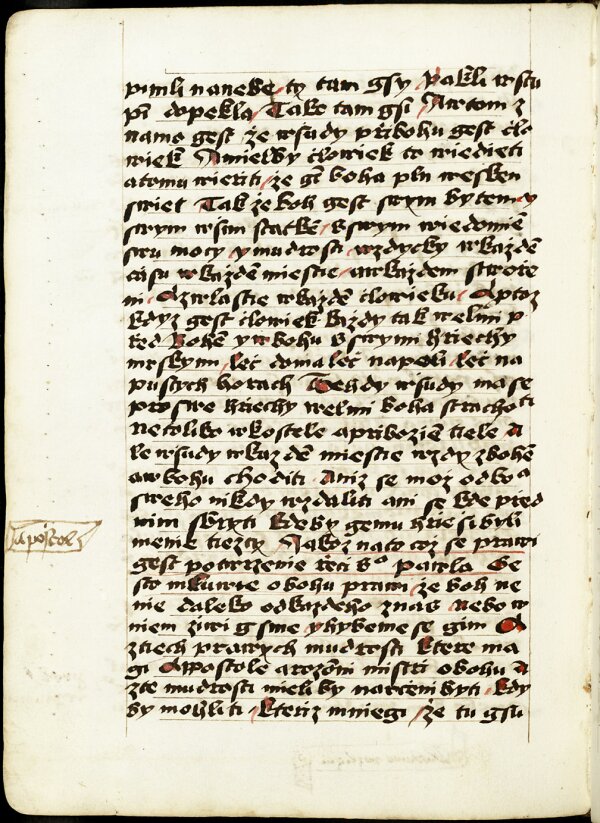 pimli nanebe ty tam gsy Pakli wstu
pi dopekla Tako tam gsi Awtom z
namo gest že wssudy přibohu gest člo
wiek Amielby člowiek to wiedieti
atomu wieriti že gt boha pln wesken
swiet Tak že boh gest swym bytem y
swym wsim statkē Vswym wiedomiē
swu mocy y mudrosti wzdycky wkazdē
času wkazdē miestie awkazdem stwoře
ni A zwlastie wkazdē člowieku A ptoz
kdyz gest člowiek každy tak welmi p
řed bohē y wbohu Vswymi hřiechy
mrskymi leč doma leč napoli leč na
pustych horach Tehdy wssudy ma se
pro swe hřiechy welmi boha strachoti
netoliko wkostele apřibožiē tiele A
le wssudy wkazdē miestie wzdy zbohē
awbohu choditi Aniz se moz odboa
sweho nikdy wzdaliti ani se kde před
nim skryti kdoby gemu hřiesi byli
menie tiezcy Jakoz nato coz se prawi
gest potwrzenie řeči sto pawla Ge
sto mluwie obohu prawi že boh ne
nie daleko odkazdeho znas nebo w
niem ziwi gsme yhybeme se gim A
ztiech prawych mudrosti ktere ma
gi Appostole arozōni mistři obohu A
zte mudrosti mieli by nauceni byti kdy
by mohli ti kteriz mniegi že tu gsu
apostol